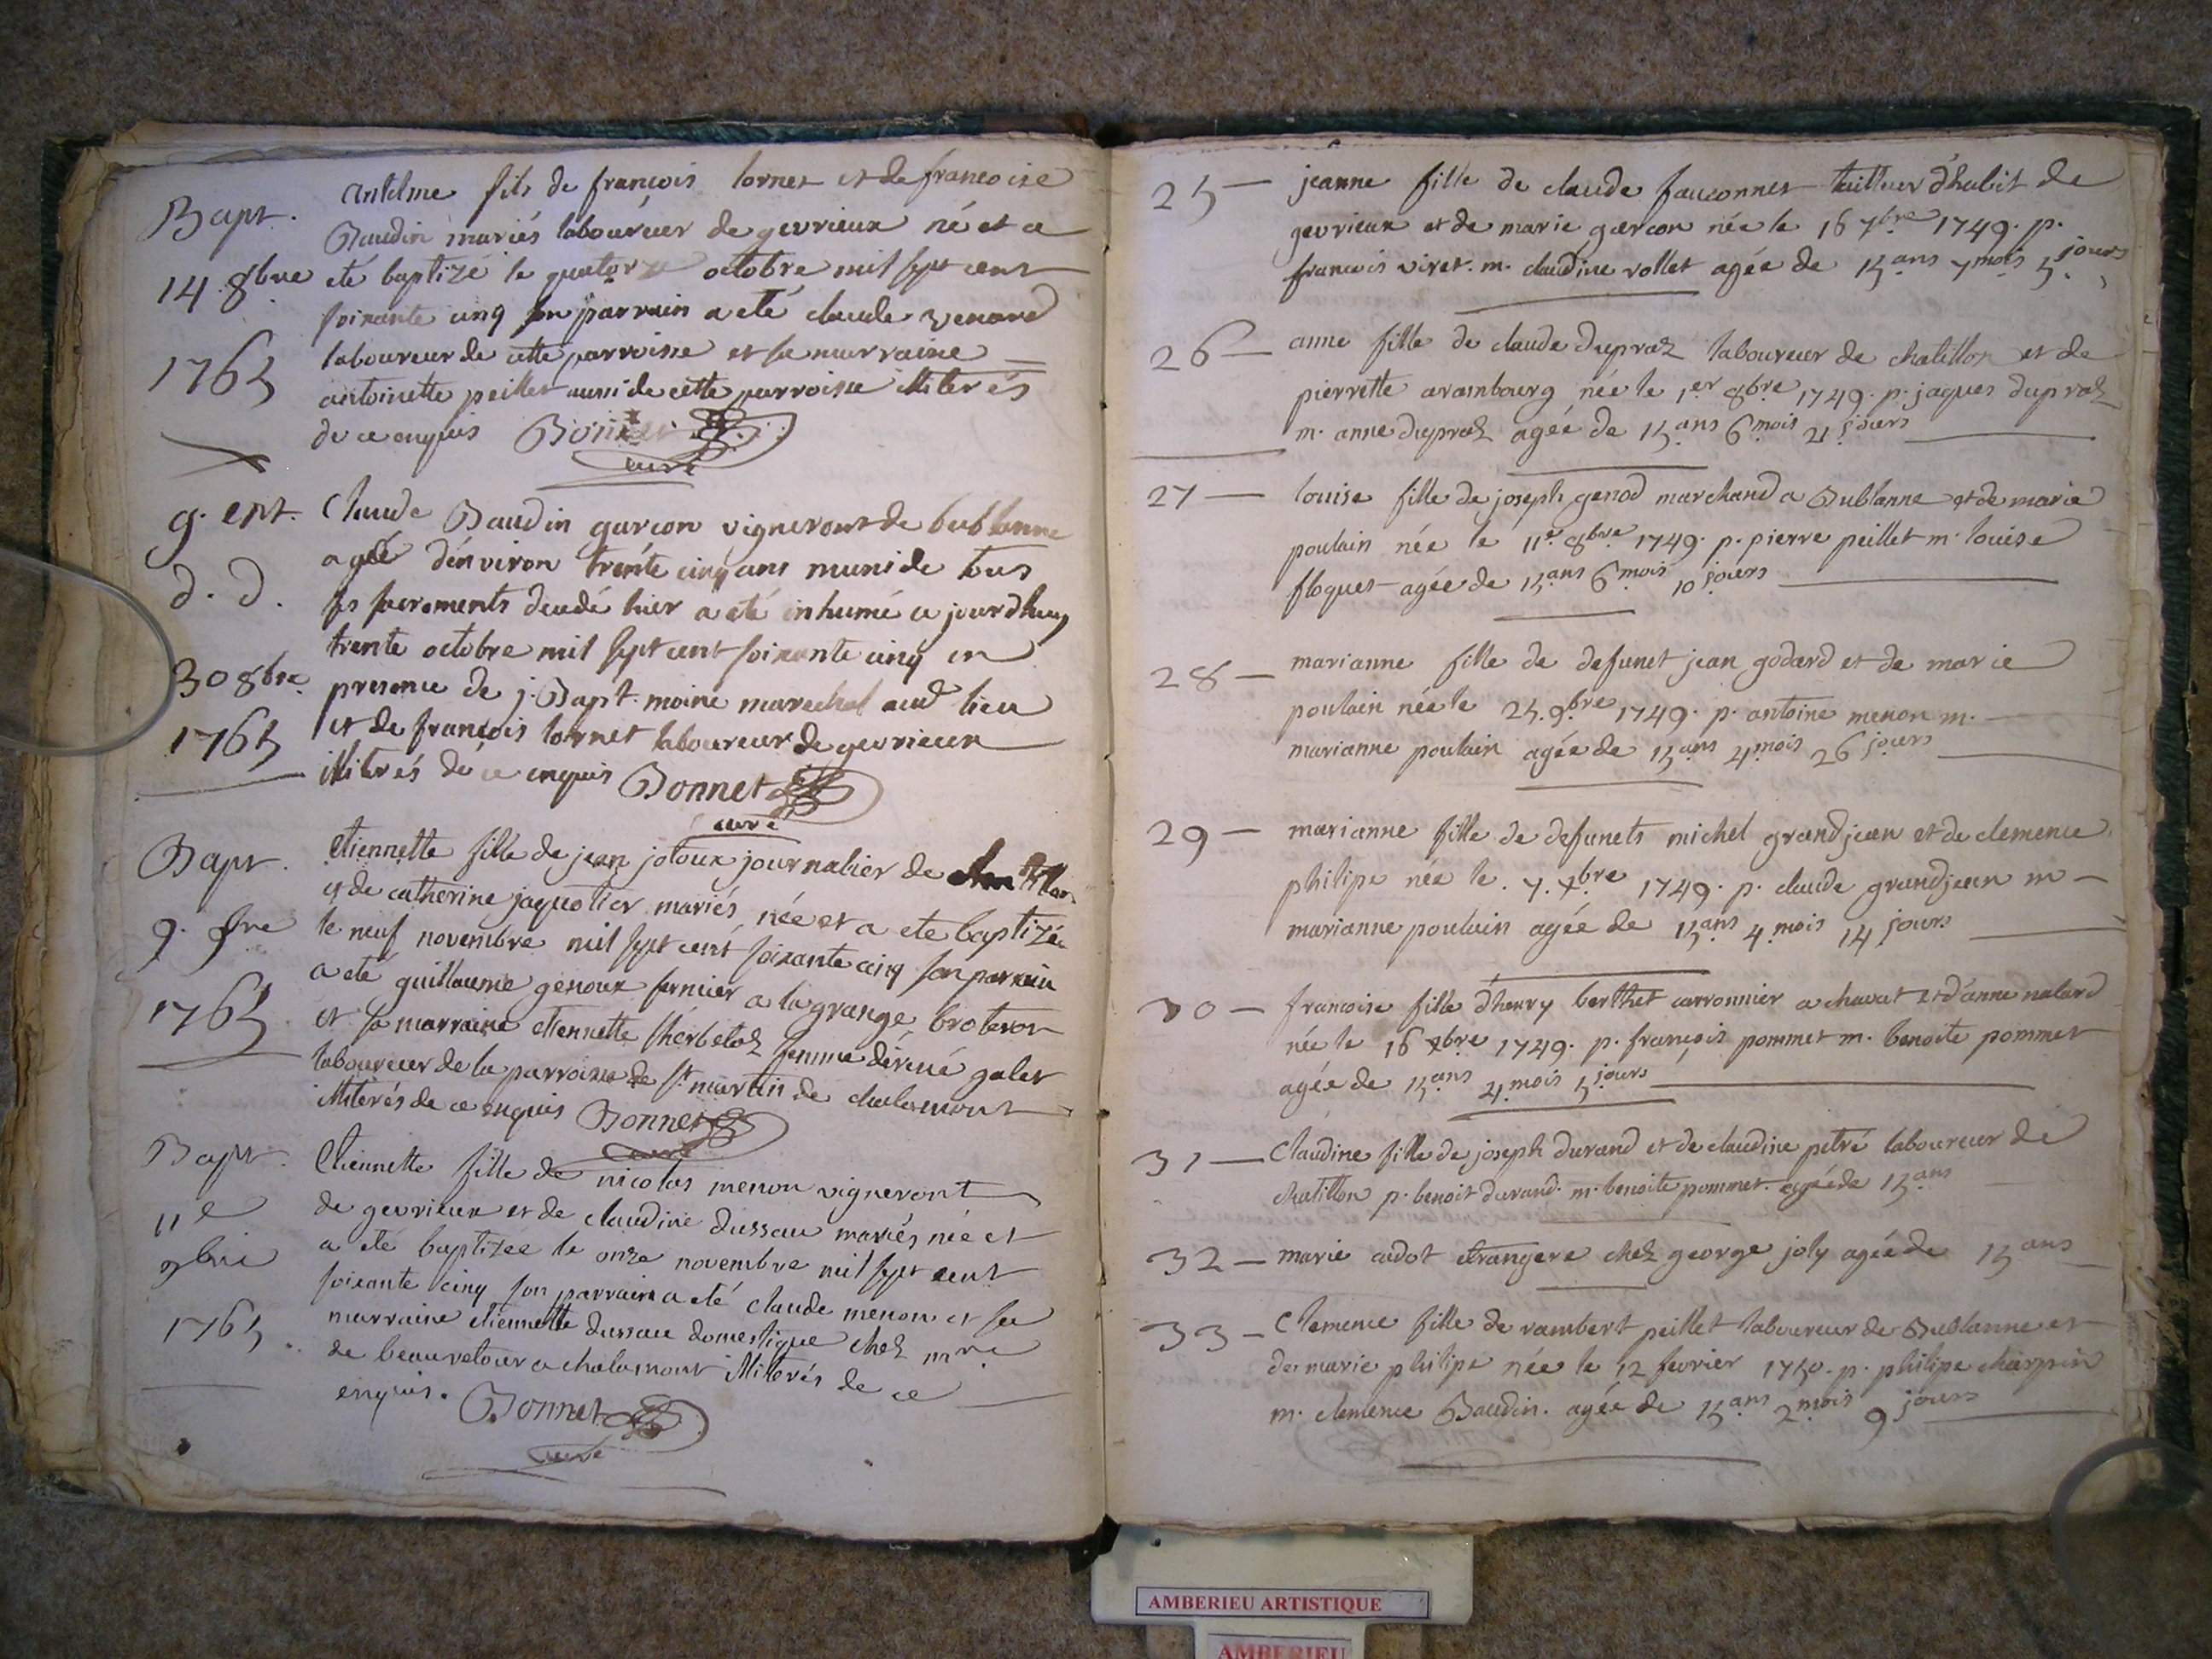 Bapt.
14 8bre
1765
antelme fils de françois tornet et de francoise
Baudin mariés laboureur de gevrieux né et a
eté baptizé le quatorze octobre mil sept cent
soixante cinq son parrain a eté claude venard
laboureur de cette parroisse et sa marraine
antoinette peillet aussi de cette parroisse illiterés
de ce enquis Bonnet
curé
g. ent.
d. d.
30 8bre
1765
Claude Baudin garcon vigneront de bublanne
agée d'environ trente cinq ans muni de tous
ses sacrements decedé hier a eté inhumé ce jourdhuy
trente octobre mil sept cent soixante cinq en
presence de j. Bapt. moine marechal aud lieu
et de françois tornet laboureur de gevrieux
illiterés de ce enquis Bonnet
curé
Bapt.
9. 9bre
1765
etiennette fille de jean joloux journalier de
et de catherine jaquotier mariés née et a ete baptizée
le neuf novembre mil sept cent soixante cinq son parrain
a eté guillaume genoux fermier a la grange broteron
et sa marraine etiennette sherbetaz femme de rené galet
laboureur de la parroisse de st martin de chalamont
illiterés de ce enquis Bonnet
curé
Bapt.
11e
9bre
1765
Etiennette fille de nicolas menon vigneront
de gevrieux et de claudine dussau mariés née et
a eté baptizee le onze novembre mil sept cent
soixante cinq son parrain a eté claude menon et sa
marraine etiennette dussau domestique chez mre
de beauretour a chalamont illiterés de ce
enquis. Bonnet
curé
25 — jeanne fille de claude fauconnet tailleur d'habit de
gevrieux et de marie garcon née le 16 7bre 1749. p.
francois viret. m. claudine rollet agée de 15 ans 7 mois 5 jours
26 — anne fille de claude dupraz laboureur de chatillon et de
pierrette arambourg née le 1er 8bre 1749. p. jaques dupraz
m. anne dupraz agée de 15 ans 6 mois 21 jours
27 — louise fille de joseph genod marchand a Bublanne et de marie
poulain née le 11e 8bre 1749. p. pierre peillet m. louise
floquet agée de 15 ans 6 mois 10 jours
28 — marianne fille de defunct jean godard et de marie
poulain née le 25. 9bre 1749. p. antoine menon m. —
marianne poulain agée de 15 ans 4 mois 26 jours
29 — marianne fille de defunets michel grandjean et de clemence
philipe née le 7. xbre 1749. p. claude grandjean m —
marianne poulain agée de 15 ans 4 mois 14 jours
30 — francoise fille d'henry berthet carronnier a chavat et d'anne nalard
née le 16 xbre 1749. p. françois pommet m. benoite pommet
agée de 15 ans 4 mois 5 jours
31 — Claudine fille de joseph durand et de claudine petré laboureur de
chatillon p. benoit durand. m. benoite pommet. agée de 15 ans
32 — marie cadot etrangere chez george joly agée de 15 ans
33 — Clemence fille de rambert peillet laboureur de Bublanne et
de marie philipe née le 12 fevrier 1750. p. philipe charpin
m. clemence Baudin. agée de 15 ans 2 mois 9 jours
AMBERIEU ARTISTIQUE
AMBERIEU